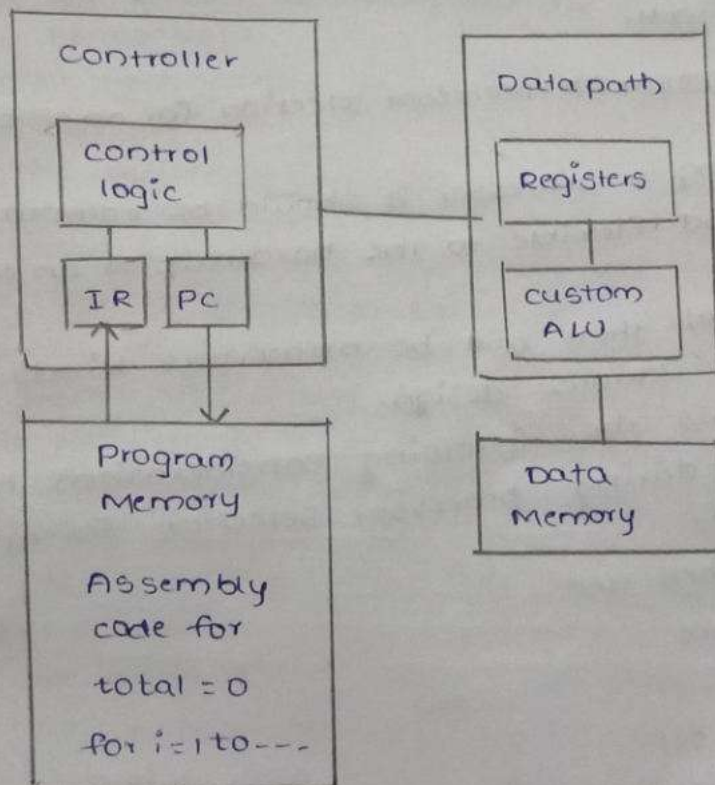 Controller
control
logic
IR
PC
Program
Memory
Assembly
code for
total = 0
for i=1 to----
Datapath
Registers
custom
ALU
Data
Memory